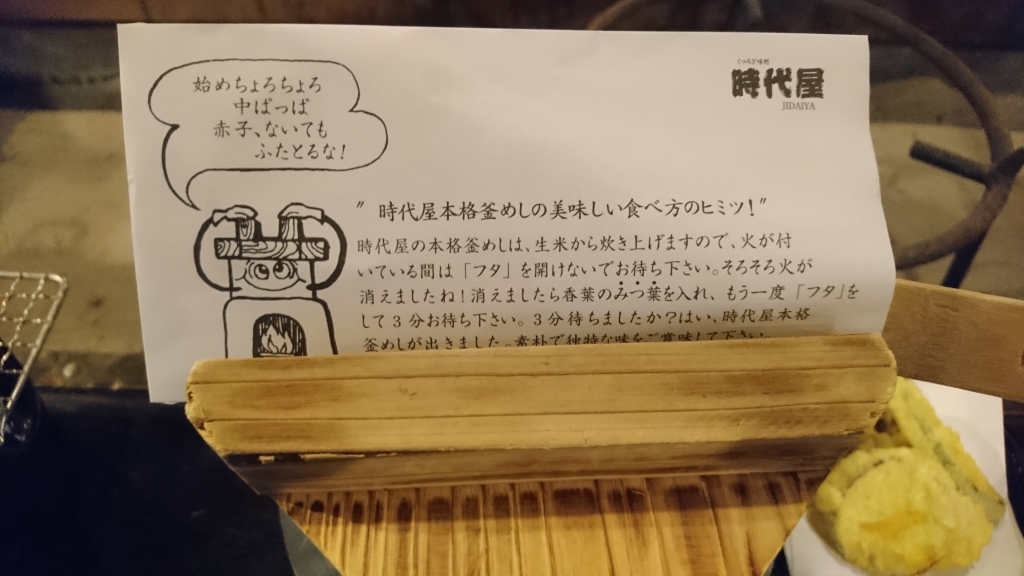 始めちょろちょろ
中ぱっぱ
赤子、ないても
ふたとるな!
くつろぎ味処
時代屋
JIDAIYA
" 時代屋本格釜めしの美味しい食べ方のヒミツ!"
時代屋の本格釜めしは、生米から炊き上げますので、火が付
いている間は「フタ」を開けないでお待ち下さい。そろそろ火が
消えましたね!消えましたら香葉のみつ葉を入れ、もう一度「フタ」を
して3分お待ち下さい。3分待ちましたか?はい、時代屋本格
釜めしが出きました。素朴で独特な味をご賞味して下さい。